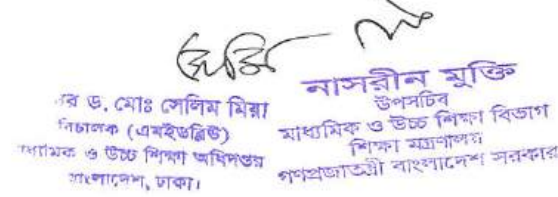 ড. মোঃ সেলিম মিয়া
(এমইডব্লিউ)
ও উচ্চ শিক্ষা অধিদপ্তর
বাংলাদেশ, ঢাকা।
নাসরীন মুক্তি
উপসচিব
মাধ্যমিক ও উচ্চ শিক্ষা বিভাগ
শিক্ষা মন্ত্রণালয়
গণপ্রজাতন্ত্রী বাংলাদেশ সরকার